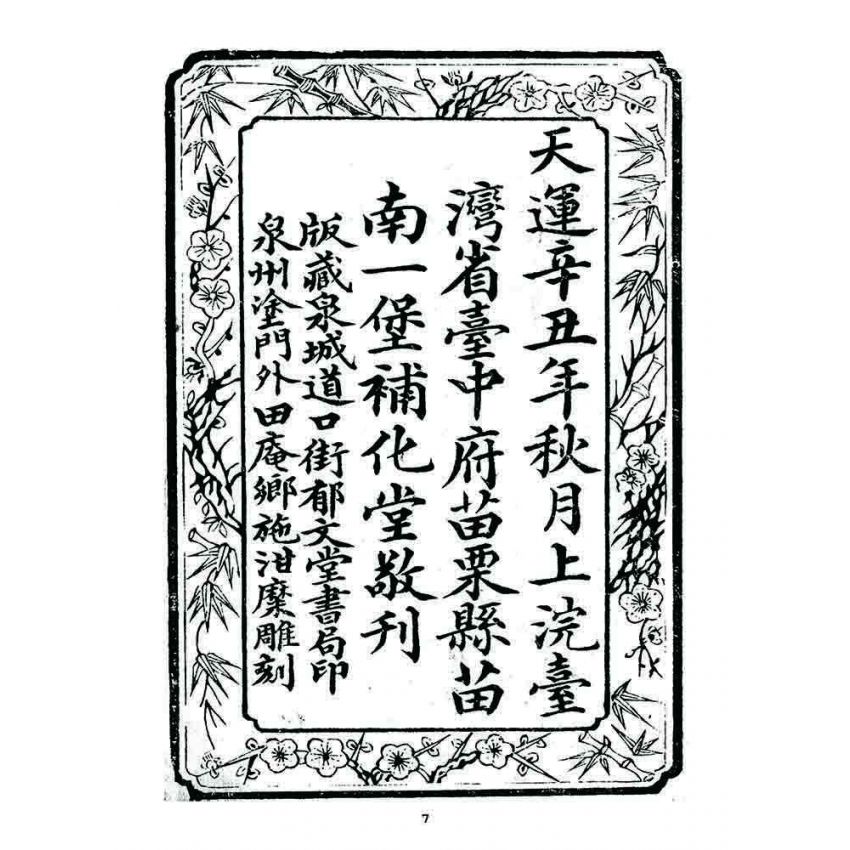 天運辛丑年秋月上浣臺
灣省臺中府苗栗縣苗
南一堡補化堂敬刊
版藏泉城道口街郁文堂書局印
泉州塗門外田庵鄉施泔糜雕刻
7